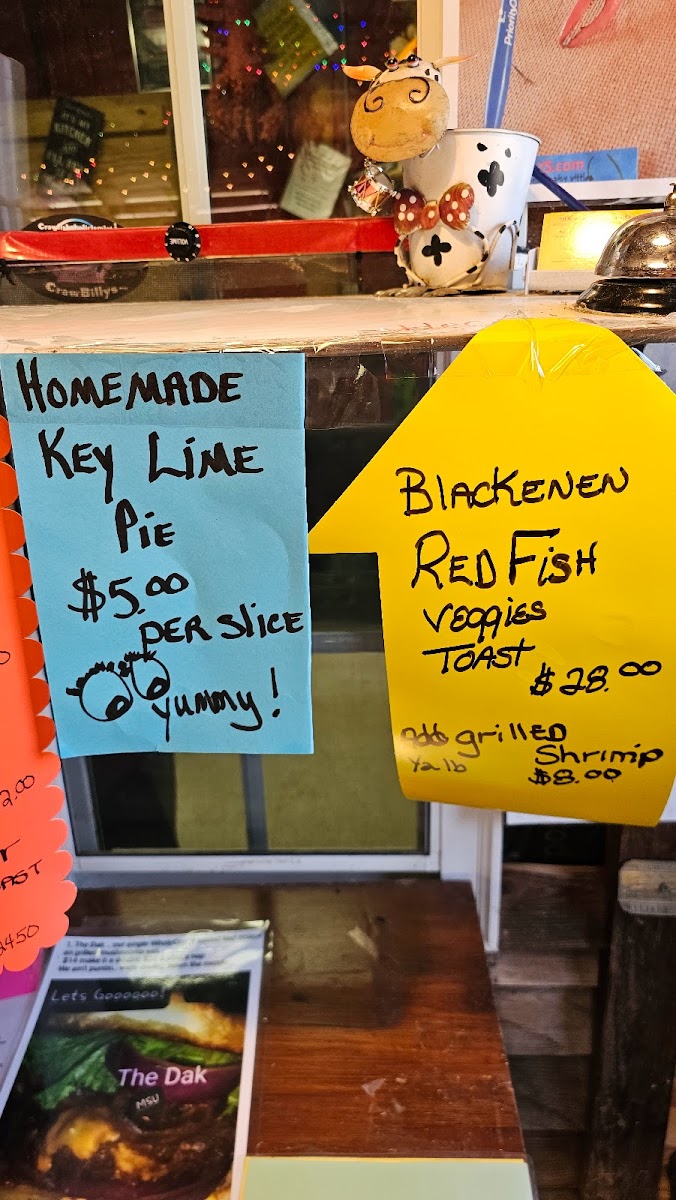 PriorityO
KITCHEN
VOLUME
CrawBillys
HOMEMADE
KEY LIME
PiE
$5.00
PER Slice
yummy!
BlACKENEN
RED FisH
VEGGiES
TOAST
$28.00
Add grillED
Shrimp
½ lb
$8.00
2.00
AST
2450
Lets Goooooo!
The Dak
MSU